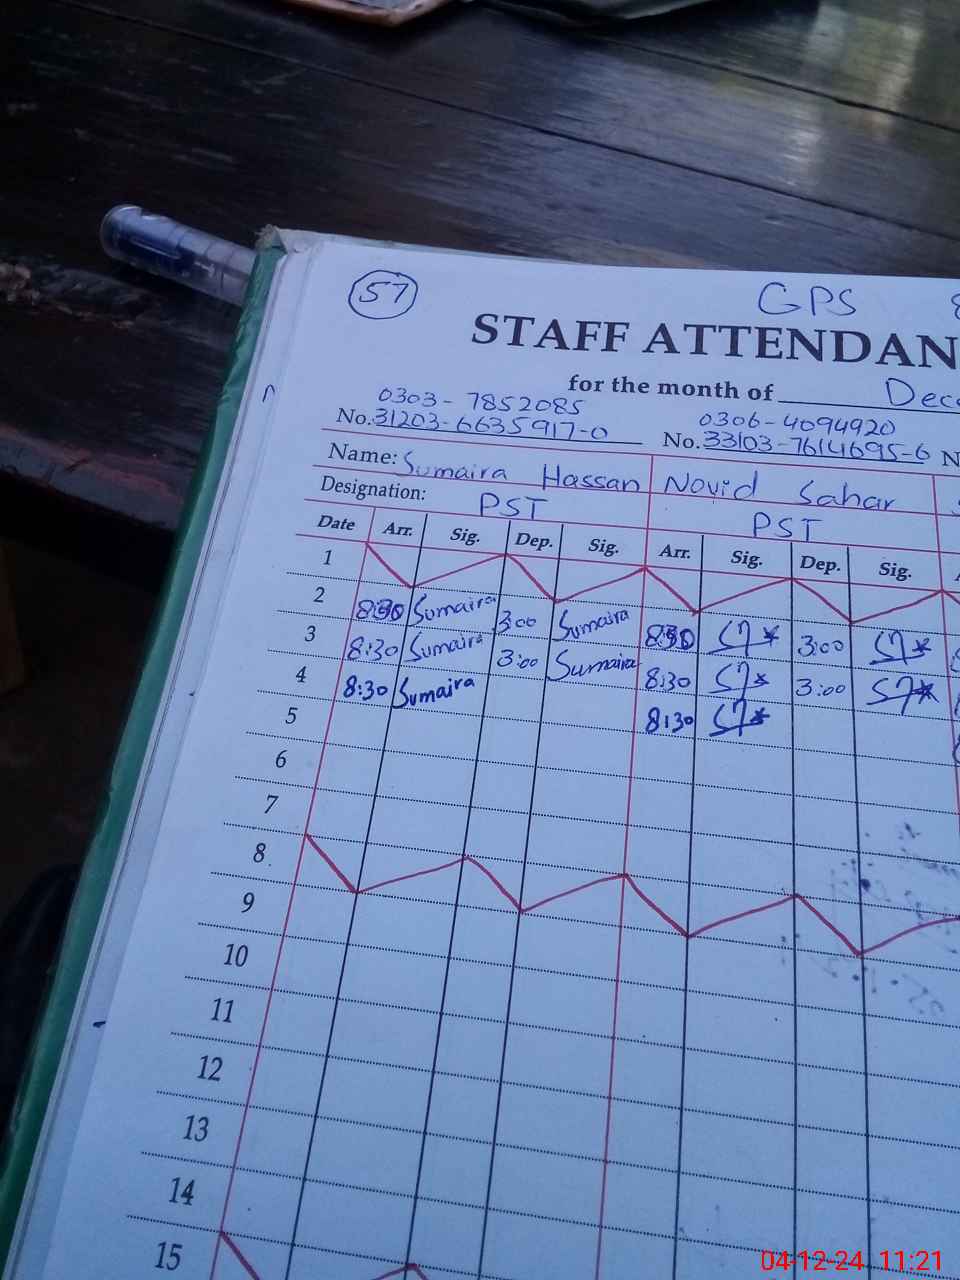 57
GPS
STAFF ATTENDAN
for the month of Dece
0303-7852085
0306-4094920
No. 31203-6635917-0 No. 33103-7614695-6 N
Name: Sumaira Hassan Novid Sahar
Designation: PST PST
Date Arr. Sig. Dep. Sig. Arr. Sig. Dep. Sig.
1
2 8:30 Sumaira 3:00 Sumaira 8:30 3:00
3 8:30 Sumaira 3:00 Sumaira 8:30 3:00
4 8:30 Sumaira 8:30
5
6
7
8
9
10
11
12
13
14
15
04-12-24 11:21